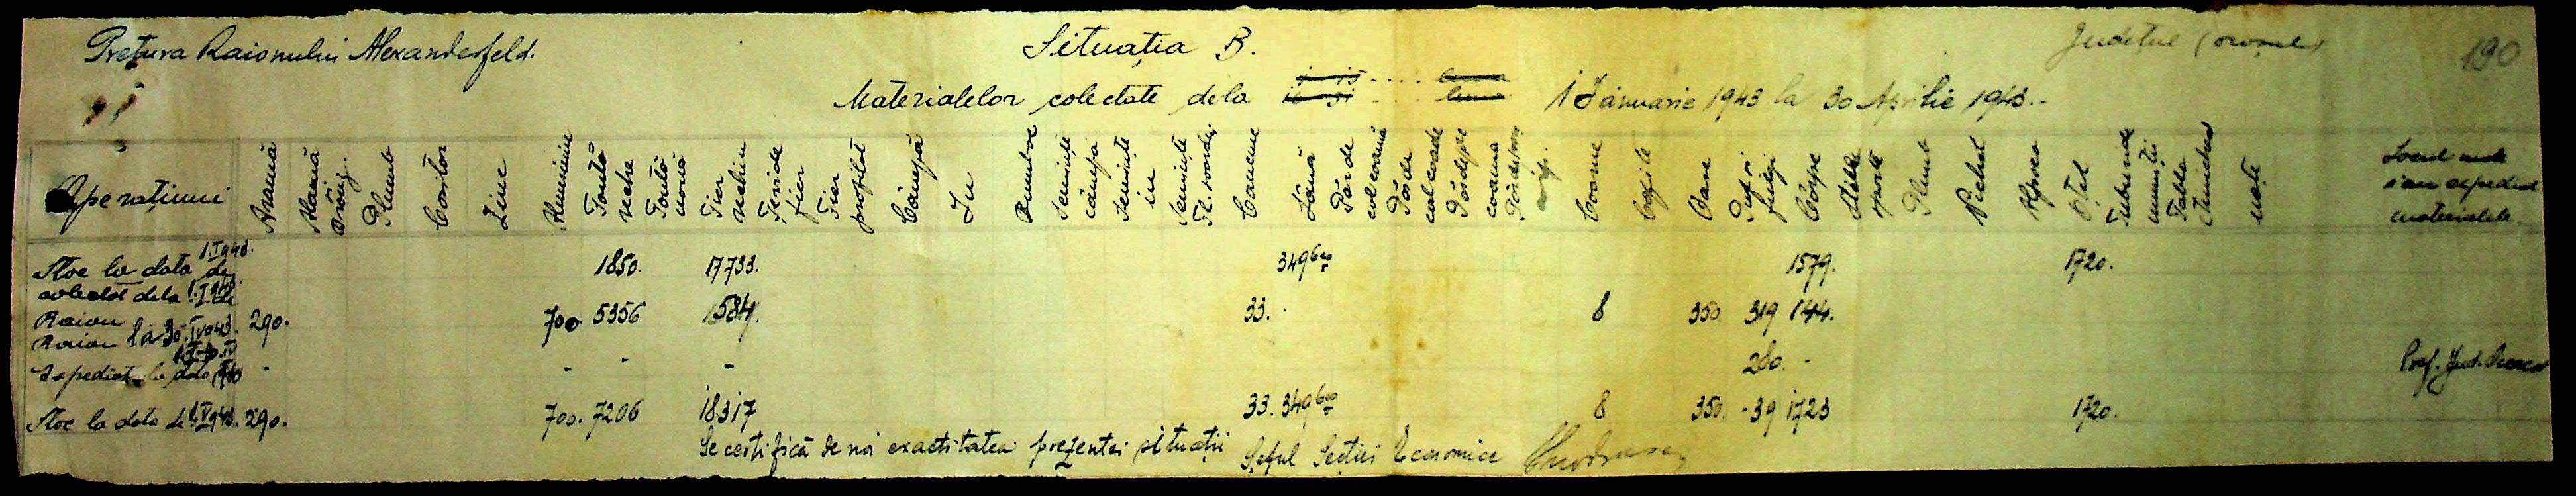 Pretura Raionului Alexanderfeld.
Situația B.
Județul (orașul)
190
Materialelor colectate dela 1 Ianuarie 1943 la 30 Aprilie 1943.-
Operațiuni
Aramă
Alamă
Bronz.
Plumb
Cositor
Zinc
Aluminiu
Fontă veche
Fontă nouă
Fier vechiu
Feride fier
Fier profilat
Cânepă
In
Bumbac
Semințe cânepă
Semințe in
Semințe
Cauciuc
Lână
Păr de
Păr de
Coarne
Copite
Oase
Cârpe
Sticlă spartă
Plumb
Nichel
Oțel
Tablă
Locul unde s'au expediat materialele.
Stoc la data de 1.I 943. 1850. 17733. 349600 1579. 1720.
colectat dela 1.I 943 de
Raion la 30.IV 943. 290. 700. 5356 1584. 33. 8 350 319 144.
Raion
Expediat la data - - - - 280. - Pref. Jud.
Stoc la data de 1.V 943. 290. 700. 7206 18317 33. 349600 8 350. -39 1723 1720.
Se certifică de noi exactitatea prezentei situații Șeful Secției Economice